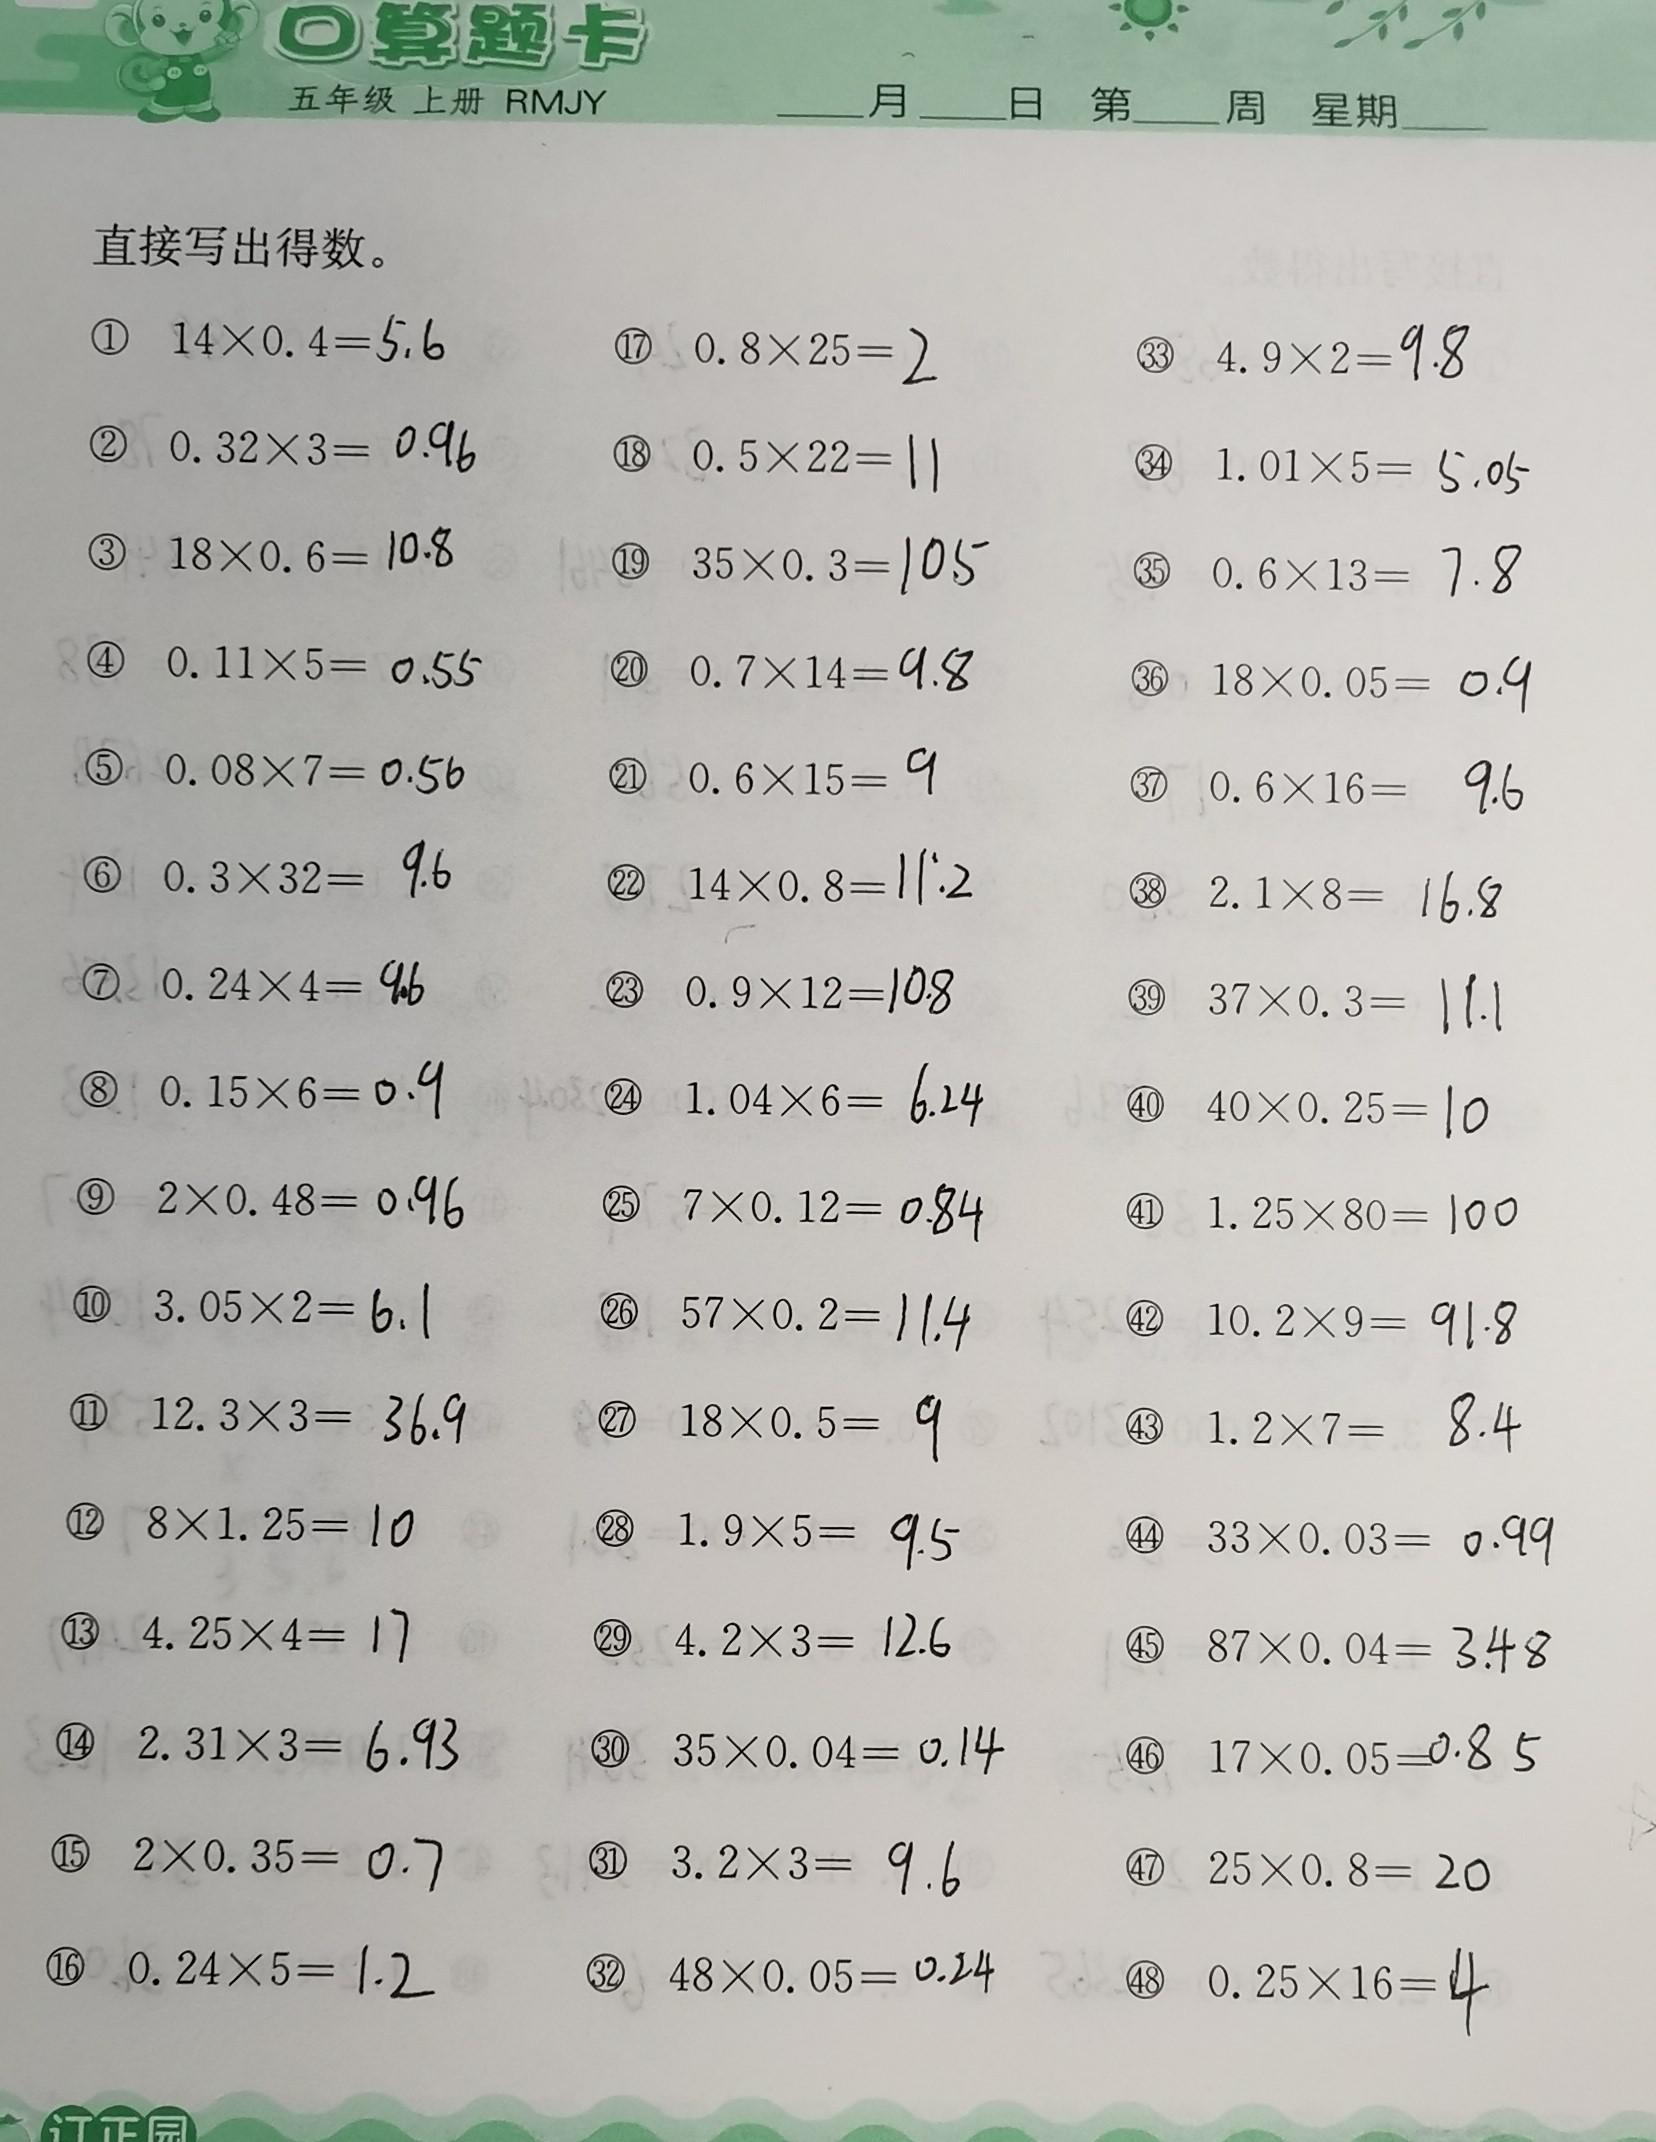 口算题卡
五年级 上册 RMJY ____月____日 第____周 星期____
直接写出得数。
① 14×0.4=5.6
② 0.32×3=0.96
③ 18×0.6=10.8
④ 0.11×5=0.55
⑤ 0.08×7=0.56
⑥ 0.3×32=9.6
⑦ 0.24×4=9.6
⑧ 0.15×6=0.9
⑨ 2×0.48=0.96
⑩ 3.05×2=6.1
⑪ 12.3×3=36.9
⑫ 8×1.25=10
⑬ 4.25×4=17
⑭ 2.31×3=6.93
⑮ 2×0.35=0.7
⑯ 0.24×5=1.2
⑰ 0.8×25=2
⑱ 0.5×22=11
⑲ 35×0.3=105
⑳ 0.7×14=9.8
㉑ 0.6×15=9
㉒ 14×0.8=11.2
㉓ 0.9×12=10.8
㉔ 1.04×6=6.24
㉕ 7×0.12=0.84
㉖ 57×0.2=11.4
㉗ 18×0.5=9
㉘ 1.9×5=9.5
㉙ 4.2×3=12.6
㉚ 35×0.04=0.14
㉛ 3.2×3=9.6
㉜ 48×0.05=0.24
㉝ 4.9×2=9.8
㉞ 1.01×5=5.05
㉟ 0.6×13=7.8
㊱ 18×0.05=0.9
㊲ 0.6×16=9.6
㊳ 2.1×8=16.8
㊴ 37×0.3=11.1
㊵ 40×0.25=10
㊶ 1.25×80=100
㊷ 10.2×9=91.8
㊸ 1.2×7=8.4
㊹ 33×0.03=0.99
㊺ 87×0.04=3.48
㊻ 17×0.05=0.85
㊼ 25×0.8=20
㊽ 0.25×16=4
订正园